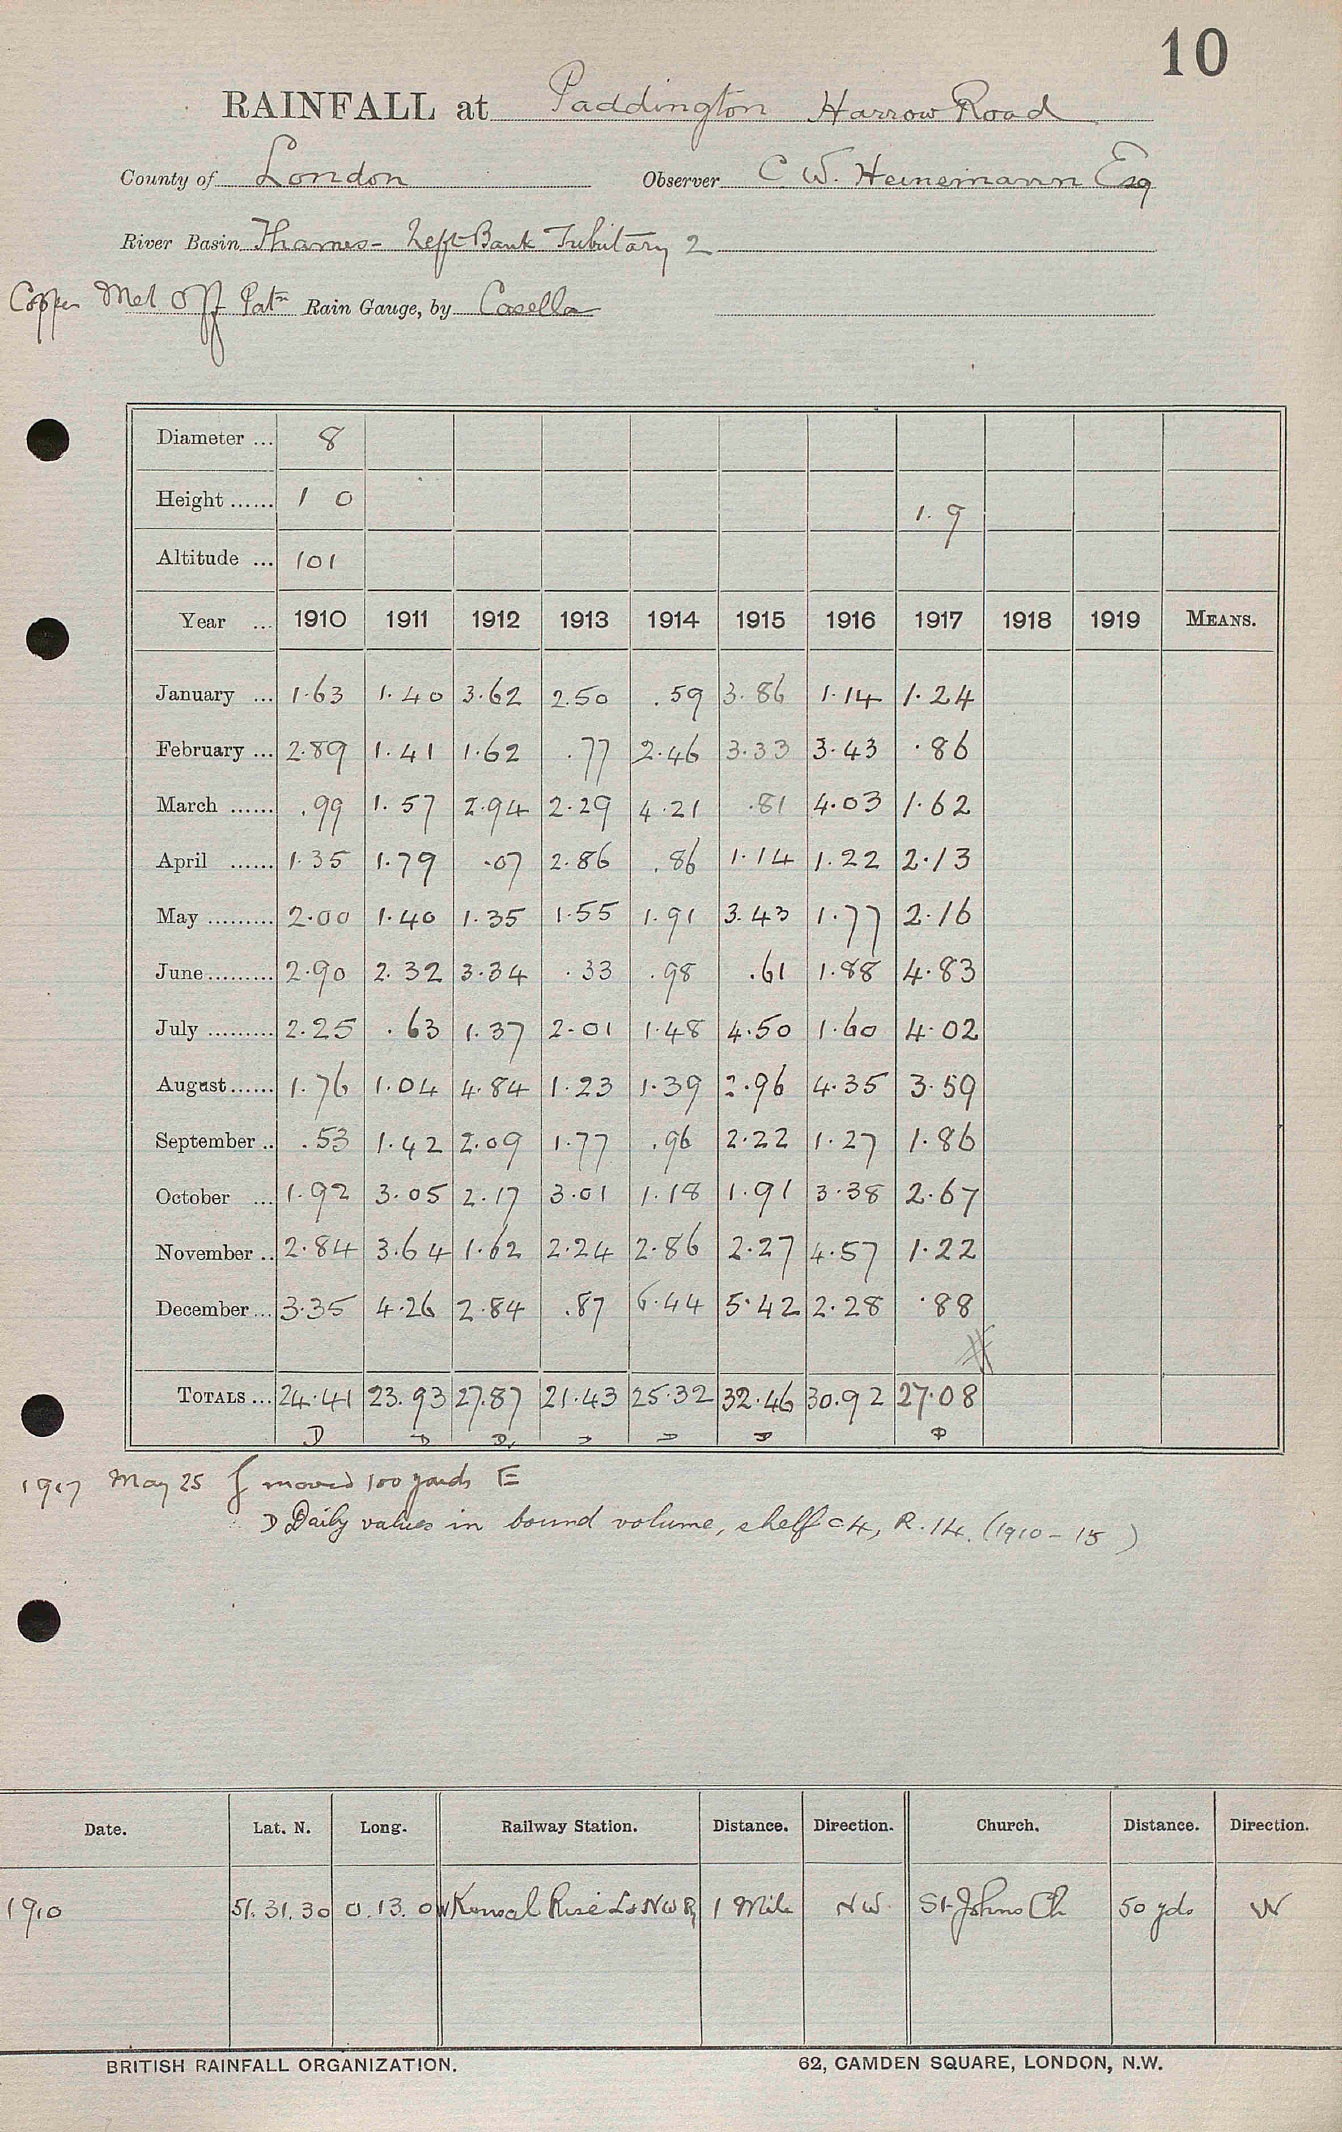 10
RAINFALL at Paddington Harrow Road
County of London Observer C. W. Heinemann Esq
River Basin Thames - Left Bank Tributary 2
Copper Met Off Patn Rain Gauge, by Casella
Diameter ... 8
Height ...... 1 0 1. 9
Altitude ... 101
Year ... 1910 1911 1912 1913 1914 1915 1916 1917 1918 1919 MEANS.
January ... 1.63 1.40 3.62 2.50 .59 3.86 1.14 1.24
February ... 2.89 1.41 1.62 .77 2.46 3.33 3.43 .86
March ...... .99 1.57 2.94 2.29 4.21 .81 4.03 1.62
April ...... 1.35 1.79 .07 2.86 .86 1.14 1.22 2.13
May ......... 2.00 1.40 1.35 1.55 1.91 3.43 1.77 2.16
June ......... 2.90 2.32 3.34 .33 .98 .61 1.88 4.83
July ......... 2.25 .63 1.37 2.01 1.48 4.50 1.60 4.02
August ...... 1.76 1.04 4.84 1.23 1.39 2.96 4.35 3.59
September .. .53 1.42 2.09 1.77 .96 2.22 1.27 1.86
October ... 1.92 3.05 2.17 3.01 1.18 1.91 3.38 2.67
November .. 2.84 3.64 1.62 2.24 2.86 2.27 4.57 1.22
December ... 3.35 4.26 2.84 .87 6.44 5.42 2.28 .88
TOTALS ... 24.41 23.93 27.87 21.43 25.32 32.46 30.92 27.08
D D D. D D D D
1917 May 25 moved 100 yards E
D Daily values in bound volume, shelf C4, R.14. (1910 - 15)
Date. Lat. N. Long. Railway Station. Distance. Direction. Church. Distance. Direction.
1910 51.31.30 0.13.0 W Kensal Rise L & N W Ry 1 Mile NW St Johns Ch 50 yds W
BRITISH RAINFALL ORGANIZATION. 62, CAMDEN SQUARE, LONDON, N.W.